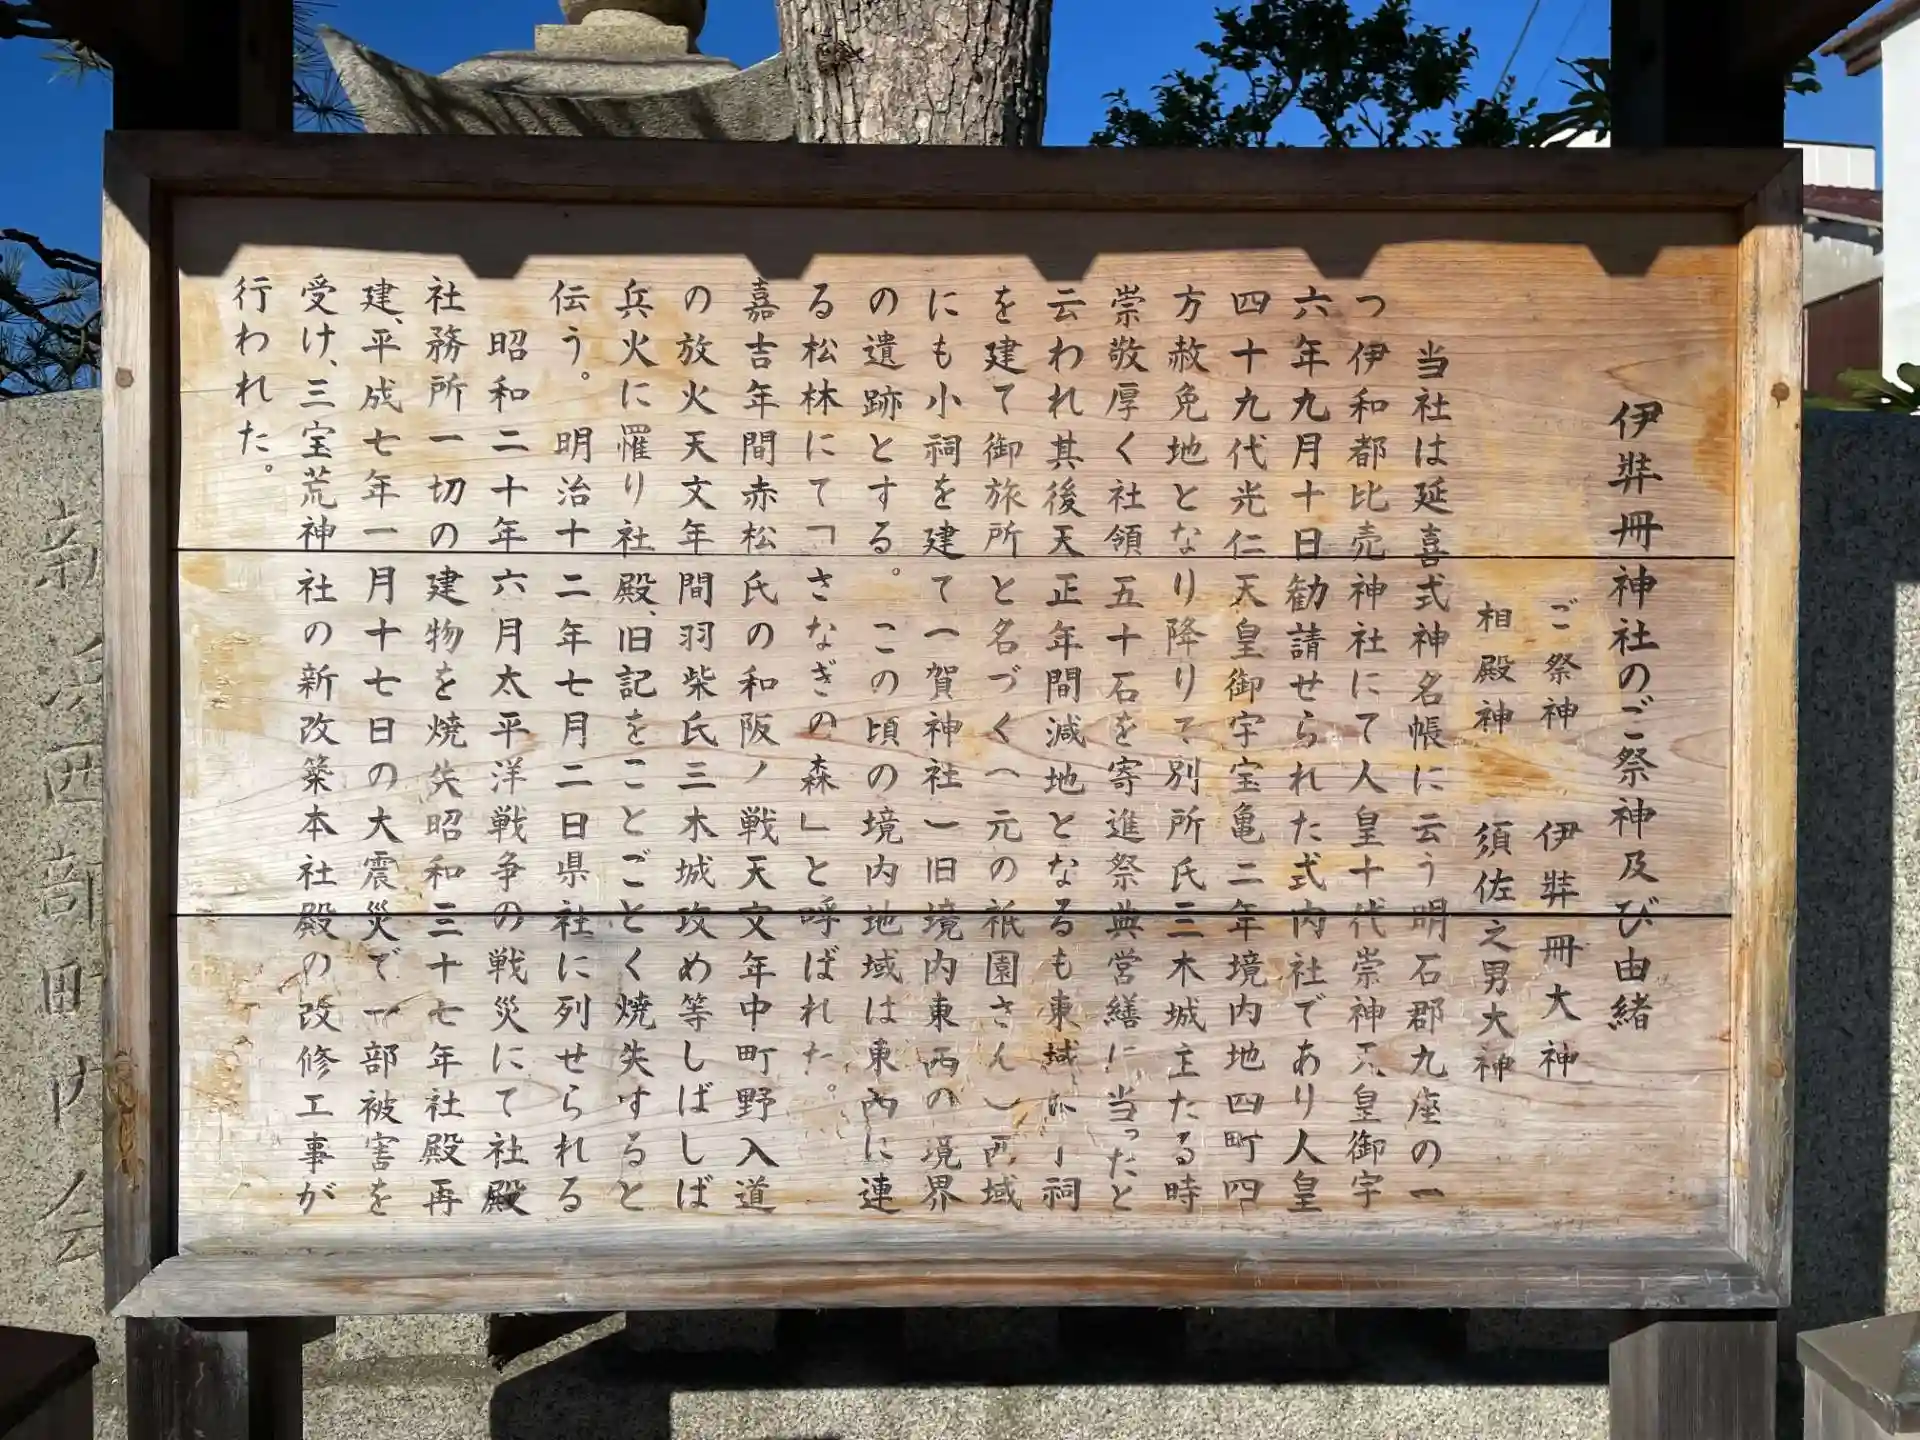 伊弉冊神社のご祭神及び由緒
ご祭神　伊弉冊大神
相殿神　須佐之男大神
当社は延喜式神名帳に云う明石郡九座の一
つ伊和都比売神社にて人皇十代崇神天皇御宇
六年九月十日勧請せられた式内社であり人皇
四十九代光仁天皇御宇宝亀二年境内地四町四
方赦免地となり降りて別所氏三木城主たる時
崇敬厚く社領五十石を寄進祭典営繕に当ったと
云われ其後天正年間減地となるも東域に一祠
を建て御旅所と名づく（元の祇園さん）西域
にも小祠を建て一賀神社一旧境内東西の境界
の遺跡とする。この頃の境内地域は東西に連
る松林にて「さなぎの森」と呼ばれた。
嘉吉年間赤松氏の和阪ノ戦天文年中町野入道
の放火天文年間羽柴氏三木城攻め等しばしば
兵火に罹り社殿、旧記をことごとく焼失すると
伝う。明治十二年七月二日県社に列せられる
昭和二十年六月太平洋戦争の戦災にて社殿
社務所一切の建物を焼失昭和三十七年社殿再
建、平成七年一月十七日の大震災で一部被害を
受け、三宝荒神社の新改築本社殿の改修工事が
行われた。